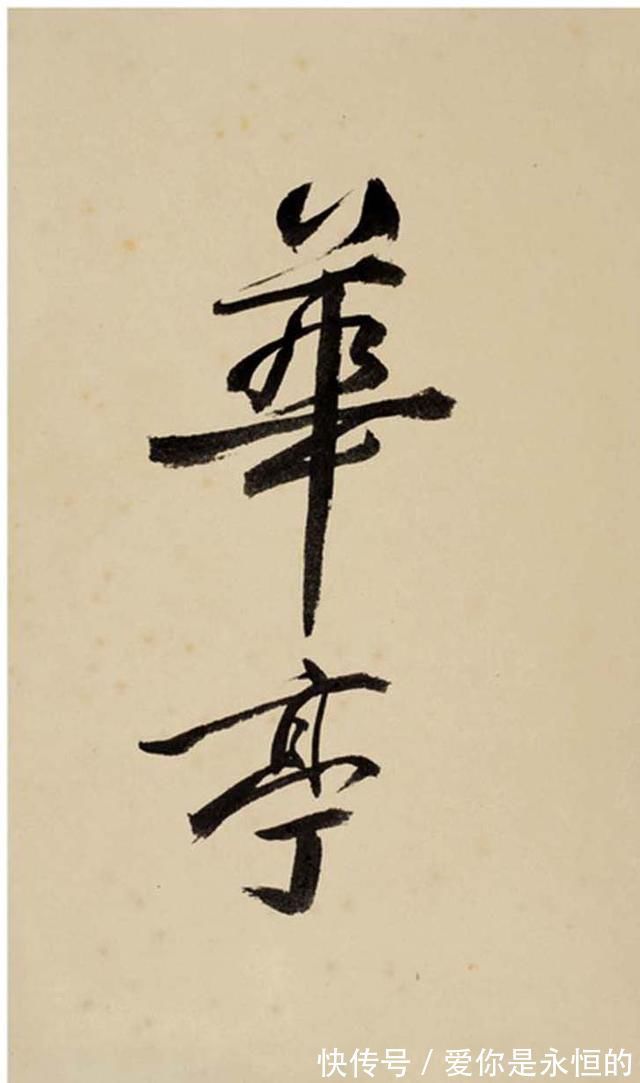 華亭
快传号 / 爱你是永恒的